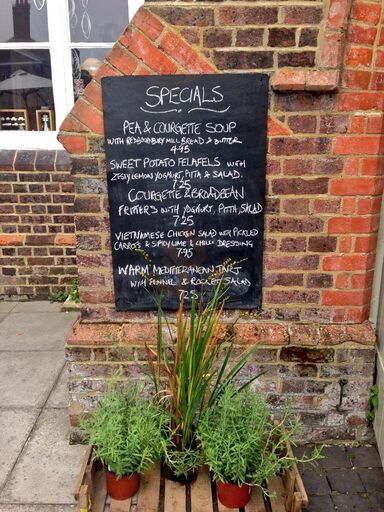 SPECIALS
PEA & COURGETTE SOUP
WITH REDBOURNBURY MILL BREAD & BUTTER
4.95
SWEET POTATO FELAFELS WITH
ZESTY LEMON YOGHURT, PITTA & SALAD.
7.25
COURGETTE & BROADBEAN
FRITTERS WITH YOGHURT, PITTA, SALAD
7.25
VIETNAMESE CHICKEN SALAD WITH PICKLED
CARROTS & SPICY LIME & CHILLI DRESSING
7.95
WARM MEDITERRANEAN TART
WITH FENNEL & ROCKET SALAD
7.25